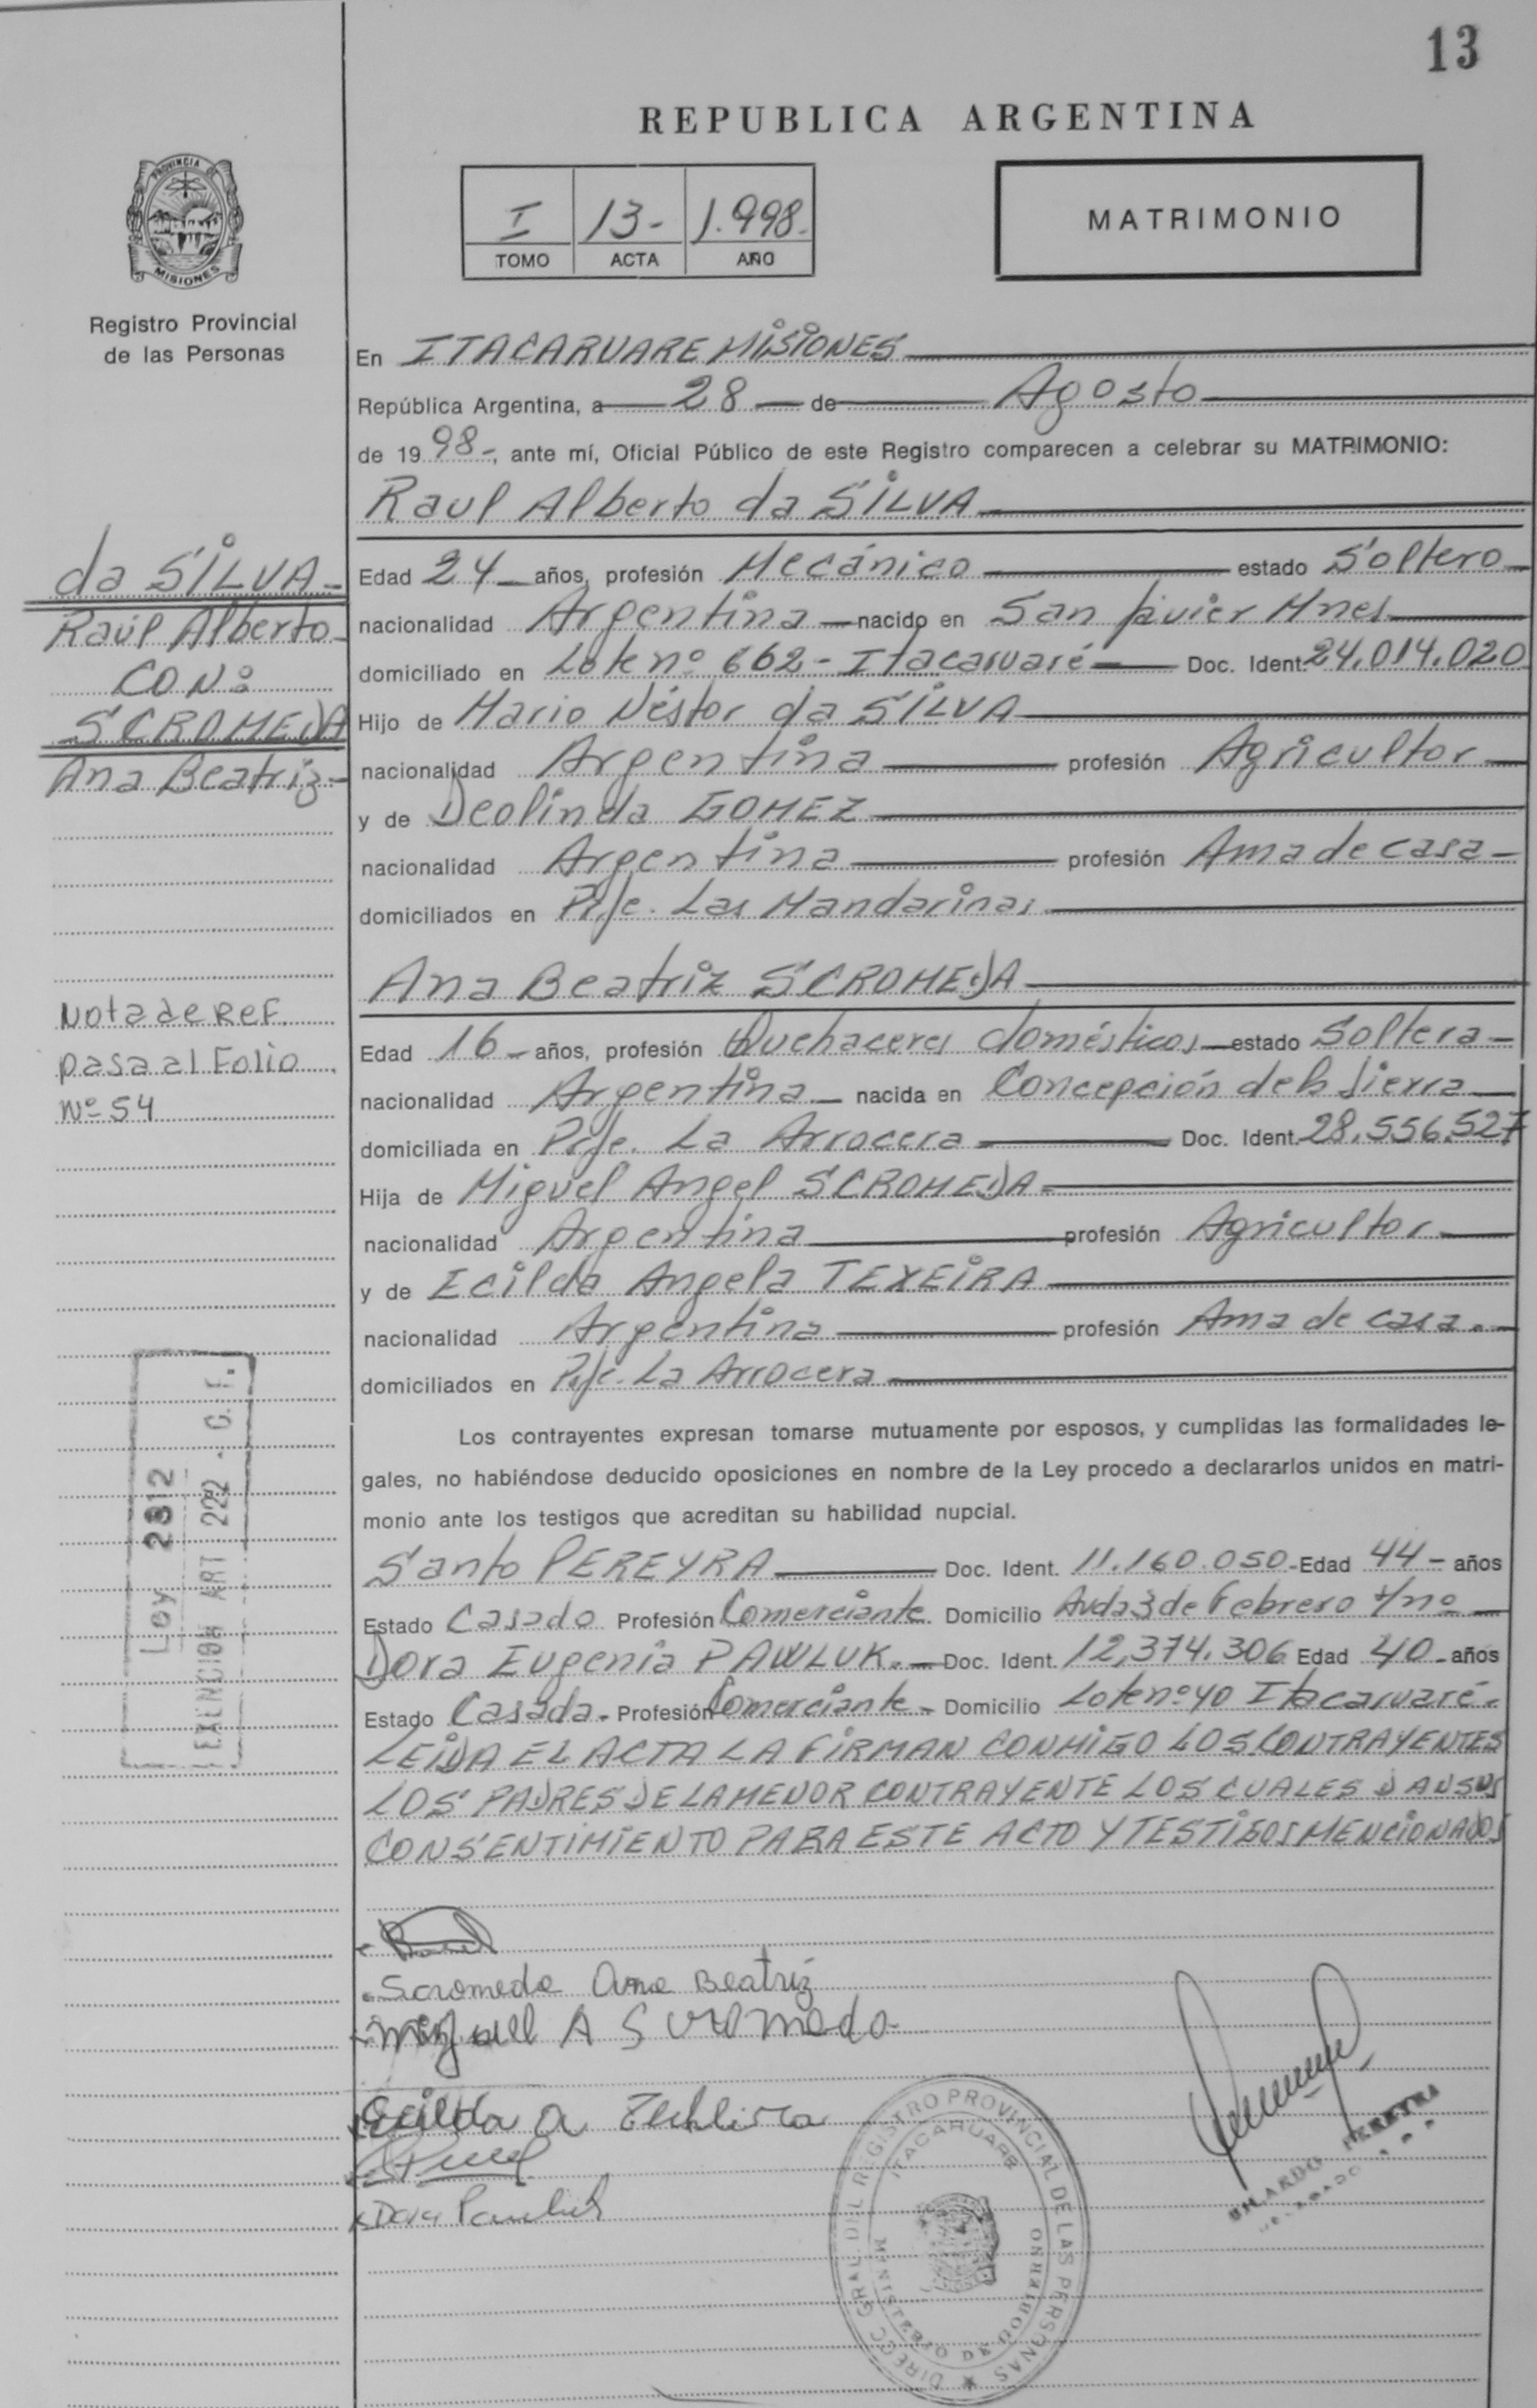 13
REPUBLICA ARGENTINA
PROVINCIA DE
MISIONES
Registro Provincial
de las Personas
I 13- 1.998.
TOMO ACTA AÑO
MATRIMONIO
En ITACARUARE MISIONES
República Argentina, a 28 de Agosto
de 19 98-, ante mí, Oficial Público de este Registro comparecen a celebrar su MATRIMONIO:
Raul Alberto da SILVA
da SILVA-
Raúl Alberto-
CON:
SCROMEDA
Ana Beatriz-
Edad 24 años, profesión Mecánico estado Soltero
nacionalidad Argentina nacido en San Javier Mnes
domiciliado en Lote nº 662- Itacaruaré Doc. Ident. 24.014.020
Hijo de Mario Néstor da SILVA
nacionalidad Argentina profesión Agricultor
y de Deolinda GOMEZ
nacionalidad Argentina profesión Ama de casa-
domiciliados en Pje. Las Mandarinas
Ana Beatriz SCROMEDA
Nota de Ref.
pasa al Folio
Nº 54
Edad 16- años, profesión Quehaceres domésticos estado Soltera-
nacionalidad Argentina nacida en Concepción de la Sierra
domiciliada en Pje. La Arrocera Doc. Ident. 28.556.527
Hija de Miguel Angel SCROMEDA
nacionalidad Argentina profesión Agricultor
y de Ecilda Angela TEXEIRA
nacionalidad Argentina profesión Ama de casa.
domiciliados en Pje. La Arrocera
Los contrayentes expresan tomarse mutuamente por esposos, y cumplidas las formalidades le-
gales, no habiéndose deducido oposiciones en nombre de la Ley procedo a declararlos unidos en matri-
monio ante los testigos que acreditan su habilidad nupcial.
Ley 2812
EXENCION ART 222 - C. F.
Santo PEREYRA Doc. Ident. 11.160.050- Edad 44- años
Estado Casado Profesión Comerciante. Domicilio Avda 3 de Febrero s/nº
Dora Eugenia PAWLUK. Doc. Ident. 12,374.306 Edad 40- años
Estado Casada- Profesión Comerciante- Domicilio Lote nº 40 Itacaruaré.
LEIDA EL ACTA LA FIRMAN CONMIGO LOS CONTRAYENTES
LOS PADRES DE LA MENOR CONTRAYENTE LOS CUALES DAN SUS
CONSENTIMIENTO PARA ESTE ACTO Y TESTIGOS MENCIONADOS
Scromeda Ana Beatriz
Miguel A Scromeda
Ecilda A
Dora Pawluk
DIRECC GRAL. DEL REGISTRO PROVINCIAL DE LAS PERSONAS
ITACARUARE
MINISTERIO DE GOBIERNO
PEREYRA